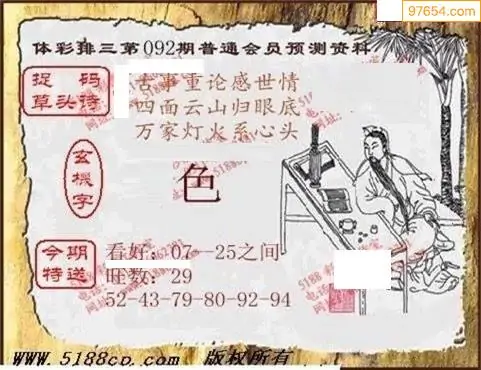 97654.com
体彩排三第092期普通会员预测资料
捉码
草头诗
古事重论感世情
四面云山归眼底
万家灯火系心头
玄機字
色
今期
特送
看好：07--25之间
旺数：29
52-43-79-80-92-94
www.5188cp.com 版权所有